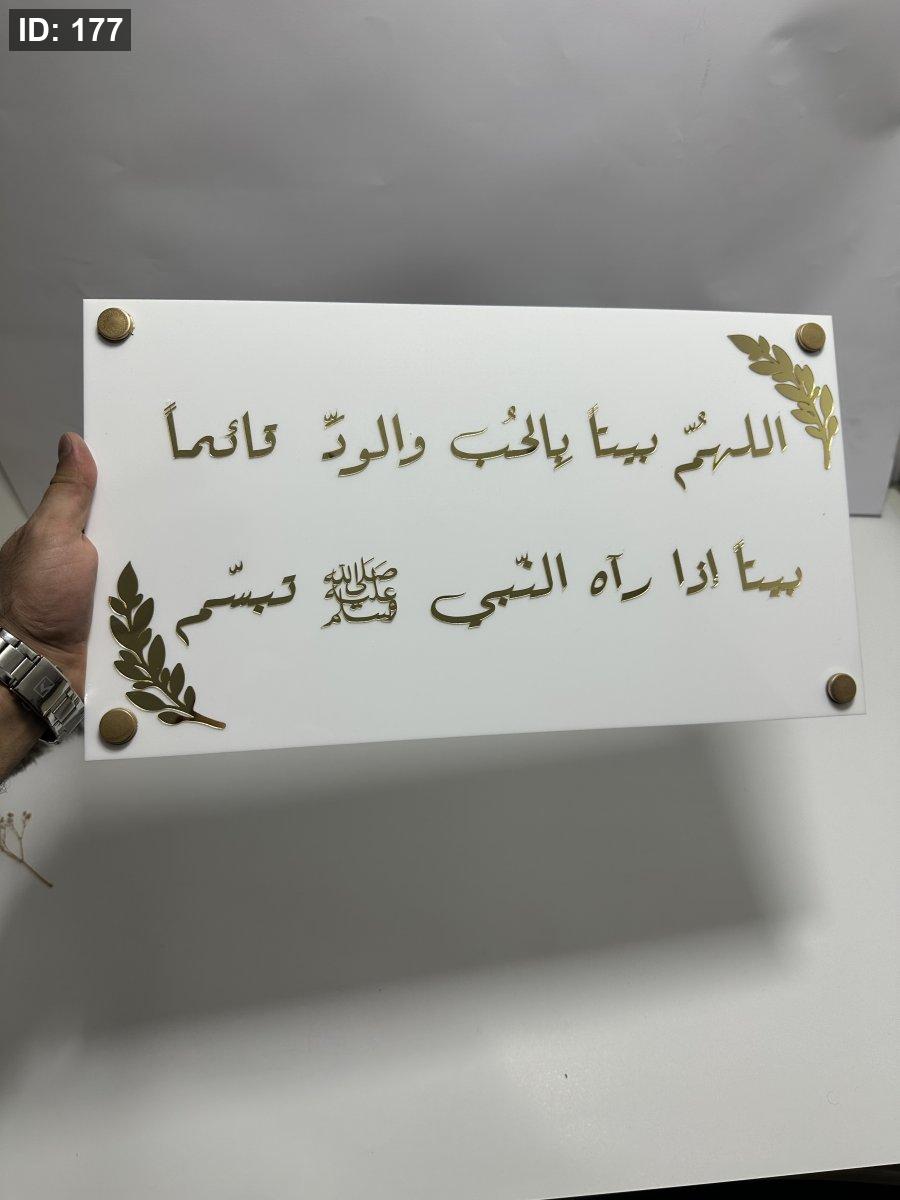 ID: 177
اللهمّ بيتاً بِالحُب والودِّ قائماً
بيتاً إذا رآه النّبي ﷺ تبسّم